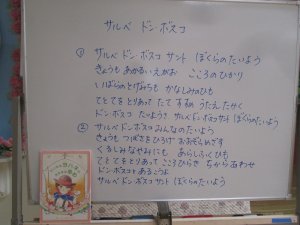 サルベ ドン・ボスコ
① サルベ ドン ボスコ サント ぼくらのたいよう
きょうも あかるいえがお こころのひかり
いばらのとげみちも かなしみのひも
てとてをとりあって たて すすめ うたえ たかく
ドン ボスコ たいよう! サルベ ドン ボスコ サント ぼくらのたいよう
② サルベ ドン ボスコ みんなのたいよう
きょうも つばさをひろげ おおぞらめざす
くるしみ なやみにも あらしふくひも
てとてをとりあって こころひらき ちからあわせ
ドン ボスコと あるこうよ
サルベ ドン ボスコ サント ぼくらのたいよう